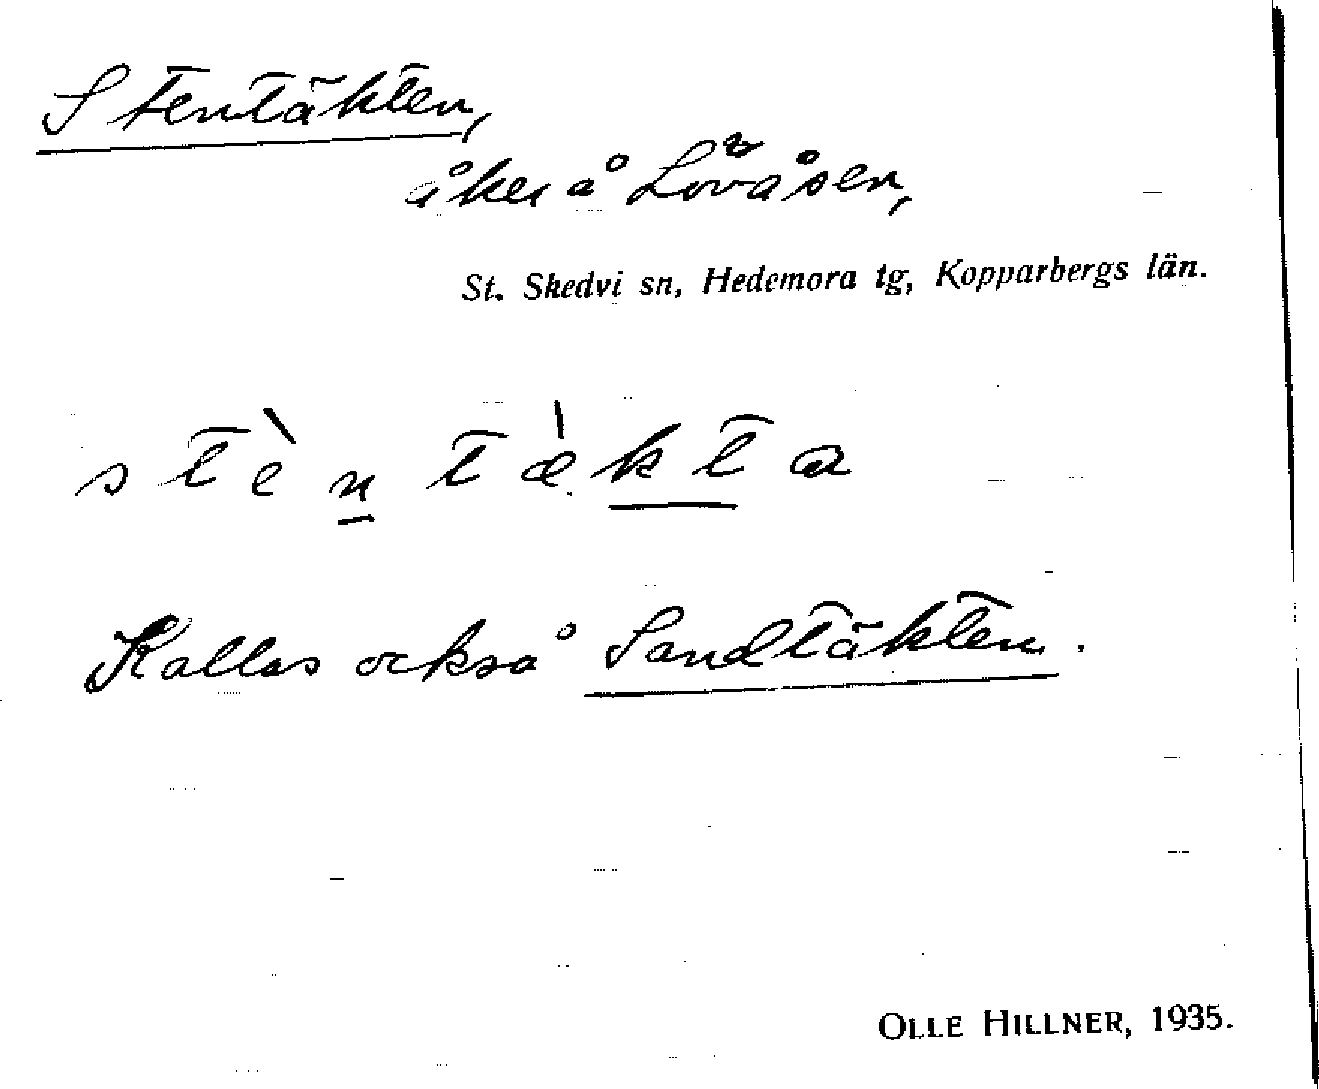 Stentäkten,
åker å Lövåsen,
St. Skedvi sn, Hedemora tg, Kopparbergs län.
stèntæ̀kta
Kallas också Sandtäkten.
OLLE HILLNER, 1935.